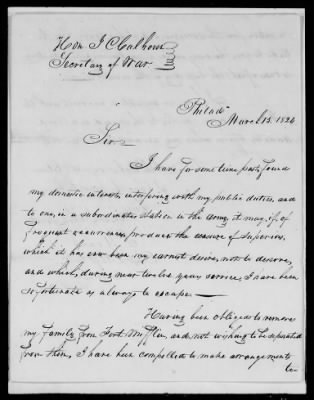 Hon J C Calhoun
Secretary of War
Philada
March 15. 1824
Sir
I have for some time past found
my domestic interests interfering with my public duties, and
to one, in a subordinate station in the Army, it may, if of
frequent occurrence, produce the censure of Superiors,
which it has ever been my earnest desire, not to deserve,
and which, during near twelve years service, I have been
so fortunate as always to escape—
Having been obliged to remove
my Family from Fort Mifflin, and not wishing to be separated
from them, I have been compelled to make arrangements